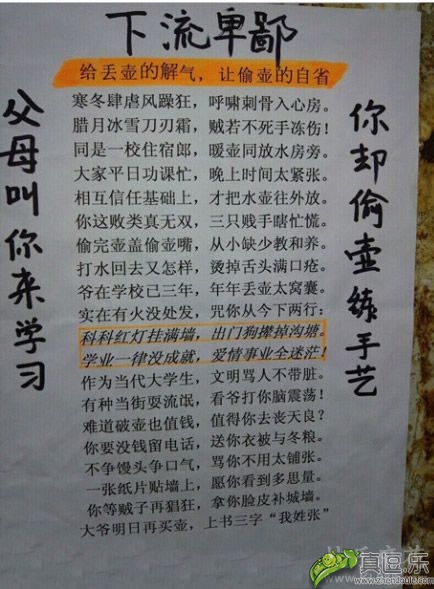 下流卑鄙
给丢壶的解气，让偷壶的自省
父母叫你来学习
你却偷壶练手艺
寒冬肆虐风躁狂，呼啸刺骨入心房。
腊月冰雪刀刃霜，贼若不死手冻伤！
同是一校住宿郎，暖壶同放水房旁。
大家平日功课忙，晚上时间太紧张。
相互信任基础上，才把水壶往外放。
你这败类真无双，三只贼手瞎忙慌。
偷完壶盖偷壶嘴，从小缺少教和养。
打水回去又怎样，烫掉舌头满口疮。
爷在学校已三年，年年丢壶太窝囊。
实在有火没处发，咒你从今下两行：
科科红灯挂满墙，出门狗撵掉沟塘。
学业一律没成就，爱情事业全迷茫！
作为当代大学生，文明骂人不带脏。
有种当街耍流氓，看爷打你脑震荡！
难道破壶也值钱，值得你去丧天良？
你要没钱留电话，送你衣被与冬粮。
不争馒头争口气，骂你不用太铺张。
一张纸片贴墙上，愿你看到多思量。
你等贼子再猖狂，拿你脸皮补城墙。
大爷明日再买壶，上书三字“我姓张”
真逗乐
www.zhendoule.com